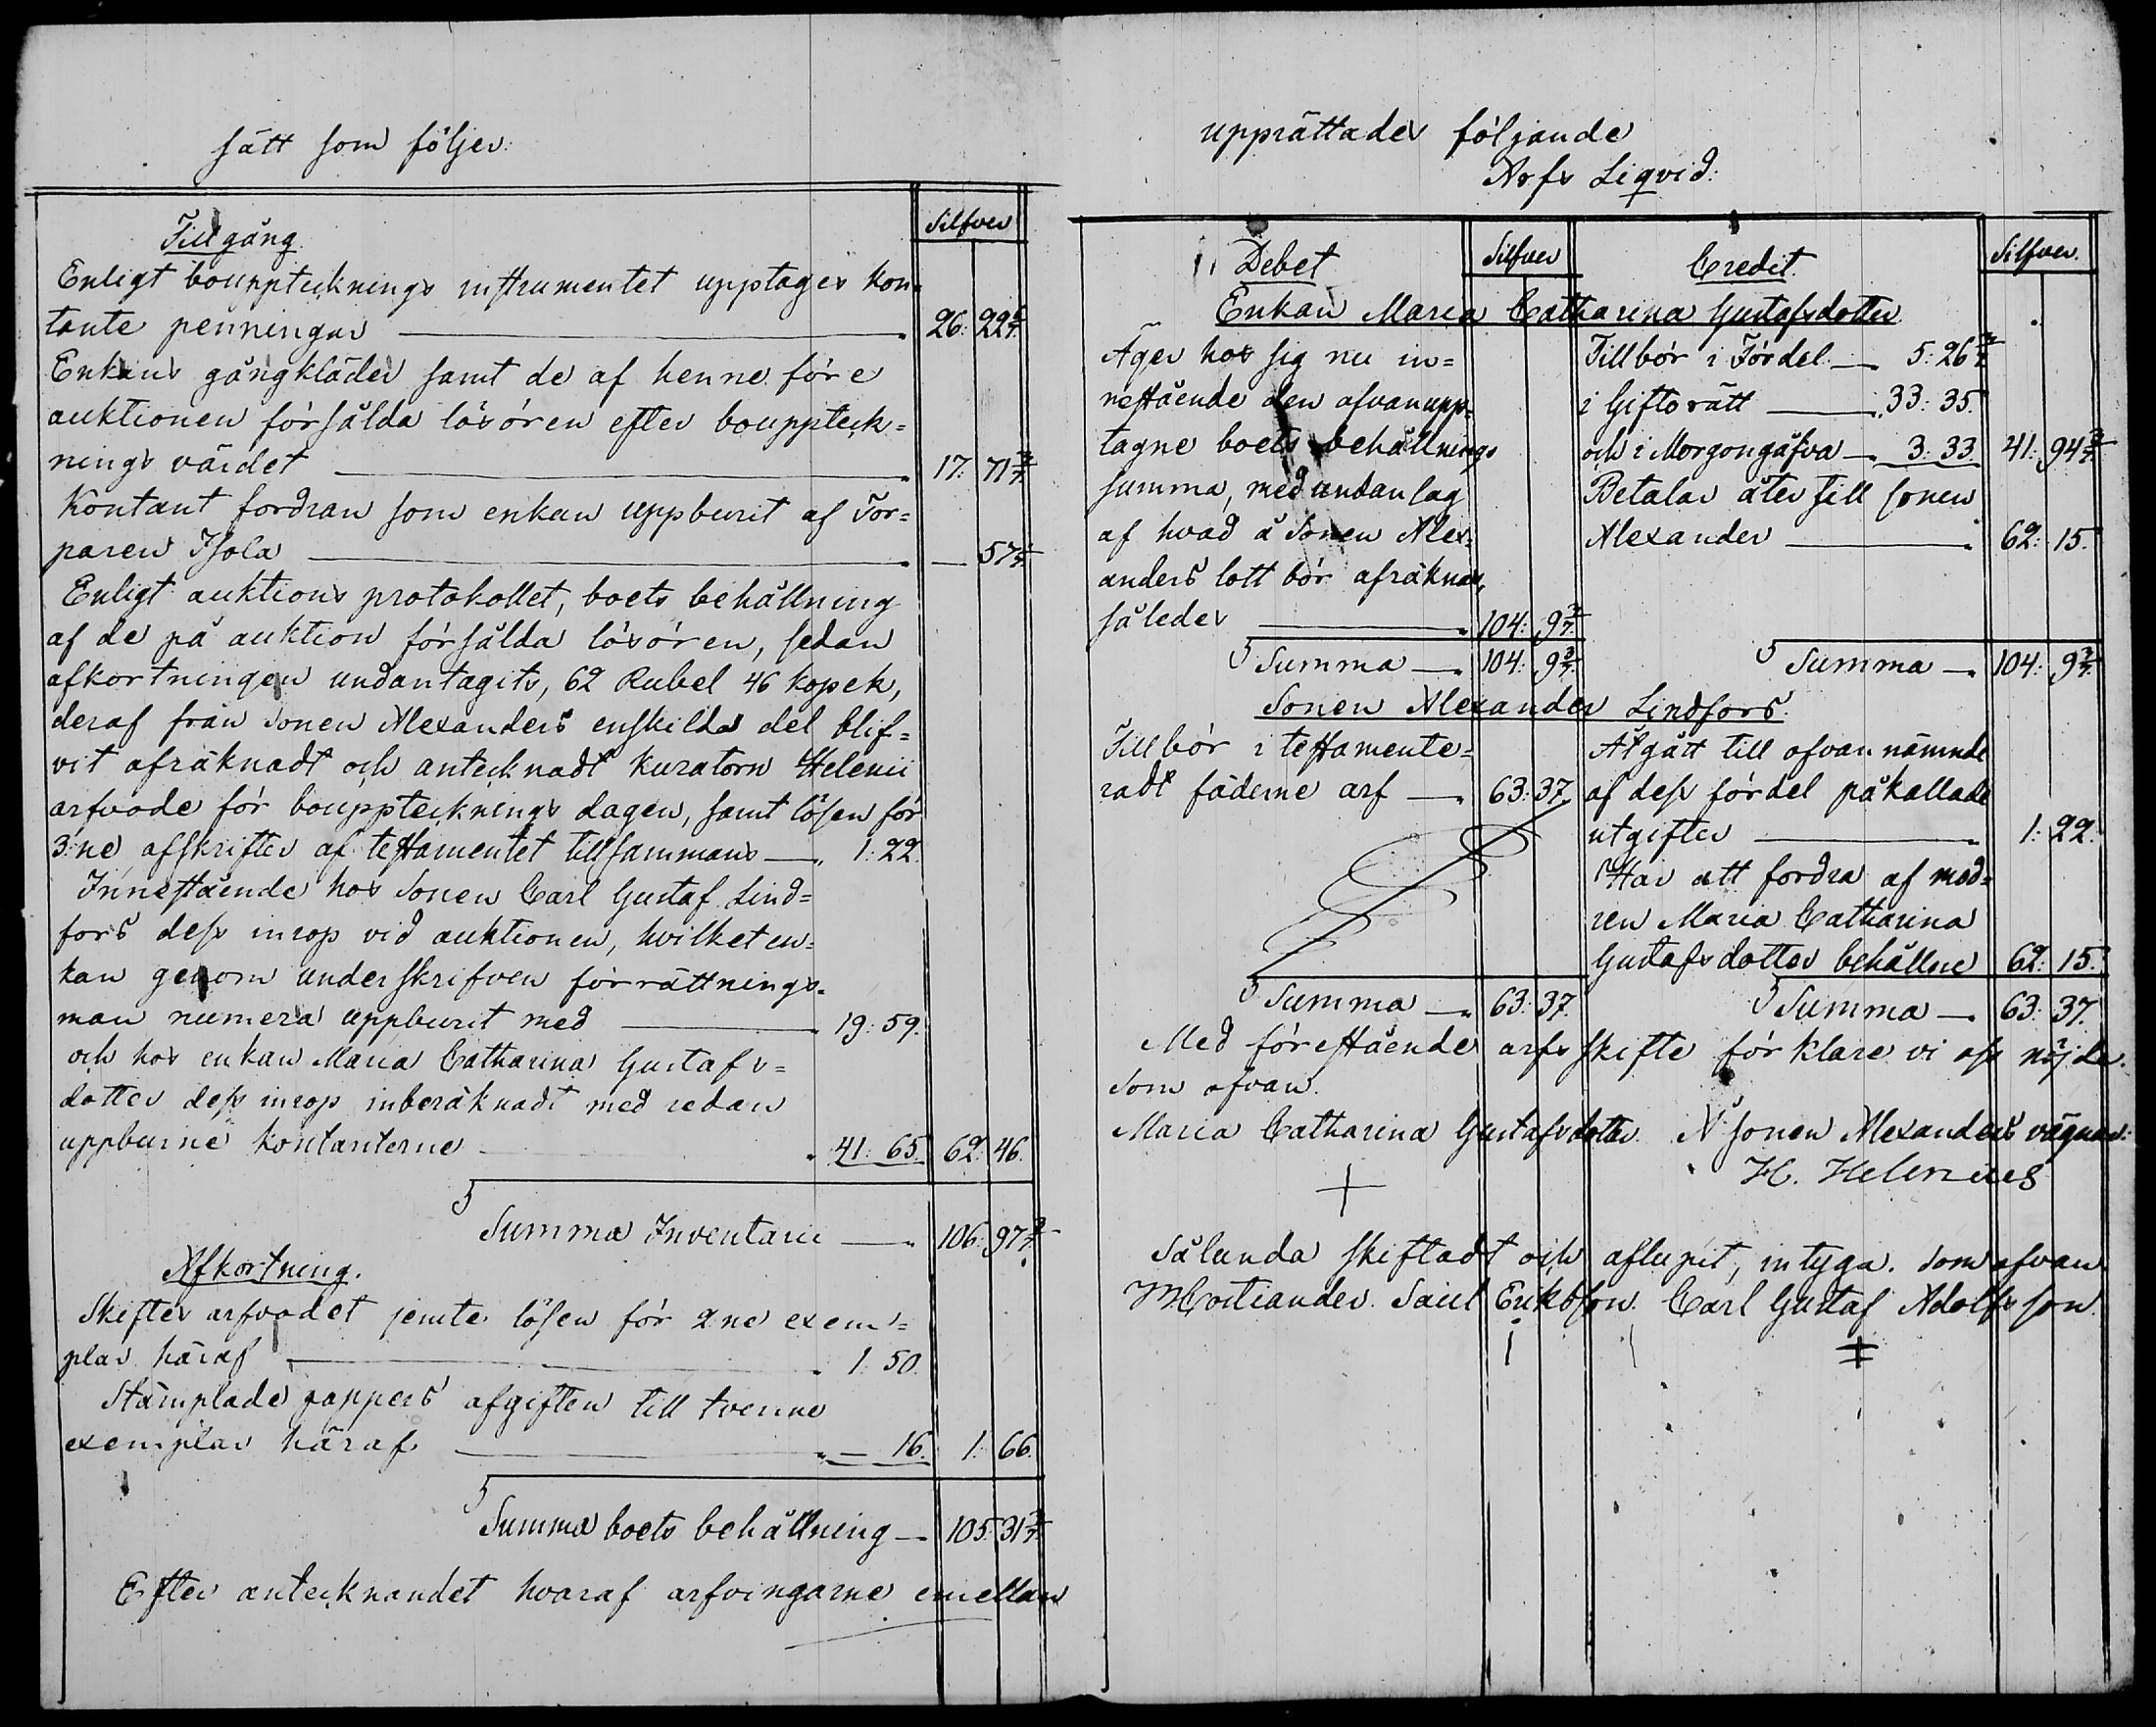 sätt som följer:
Silfver
Tillgång
Enligt bouppteknings instrumentet upptages kon=
tante penningar — 26: 22 6/7.
Enkans gångkläder samt de af henne före
auktionen försålda lösören efter boupptek=
nings värdet — 17: 71 3/7
Kontant fordran som enkan uppburit af Tor=
paren Isola — 57 1/7
Enligt auktions protokollet, boets behållning
af de på auktion försålda lösören, sedan
afkortningen undantagits, 62 Rubel 46 kopek,
deraf från sonen Alexanders enskilda del blif=
vit afräknadt och antecknadt kuratorn Helenii
arfvode för boupptecknings dagen, samt lösen för
3:ne afskrifter af testamentet tillsammans — 1: 22.
Innestående hos Sonen Carl Gustaf Lind=
fors dess inrop vid auktionen, hvilket en=
kan genom underskrifven förrättnings=
man numera uppburit med — 19: 59.
och hos enkan Maria Catharina Gustafs=
dotter dess inrop inberäknadt med redan
uppburne kontanterne — 41: 65. 62: 46.
Summa Inventarii — 106: 97 3/7
Afkortning.
Skiftes arfvodet jemte lösen för 2ne exem=
plar häraf — 1: 50.
Stämplade pappers afgiften till tvenne
exemplar häraf — 16. 1: 66.
Summa boets behållning — 105: 31 3/7
Efter antecknandet hvaraf arfvingarne emellan
upprättades följande
Arfs Liqvid:
Debet Silfver Credit. Silfver.
Enkan Maria Catharina Gustafsdotter
Äger hos sig nu in=
nestående den ofvanupp=
tagne boets behållnings
summa, med undantag
af hvad å Sonen Alex=
anders lott bör afräknas,
således — 104: 9 3/7.
Summa — 104: 9 3/7.
Tillbör i Fördel — 5: 26 3/7
i Giftorätt — 33: 35.
och i Morgongåfva — 3: 33. 41: 94 3/7
Betalar åter till sonen
Alexander — 62: 15.
Summa — 104: 9 3/7.
Sonen Alexander Lindfors.
Tillbör i testamente=
radt fäderne arf — 63: 37.
Summa — 63: 37.
Åtgått till ofvannämnde
af dess fördel påkallade
utgifter — 1: 22.
Har att fordra af mod=
ren Maria Catharina
Gustafsdotter behållne 62: 15.
Summa — 63: 37.
Med förestående arfs skifte förklare vi oss nöjde.
som ofvan.
Maria Catharina Gustafsdotter. Å sonen Alexanders vägnar:
H. Helenius
Sålunda skiftadt och aflupit, intyga. som ofvan
Saul Eriksson. Carl Gustaf Adolfsson.